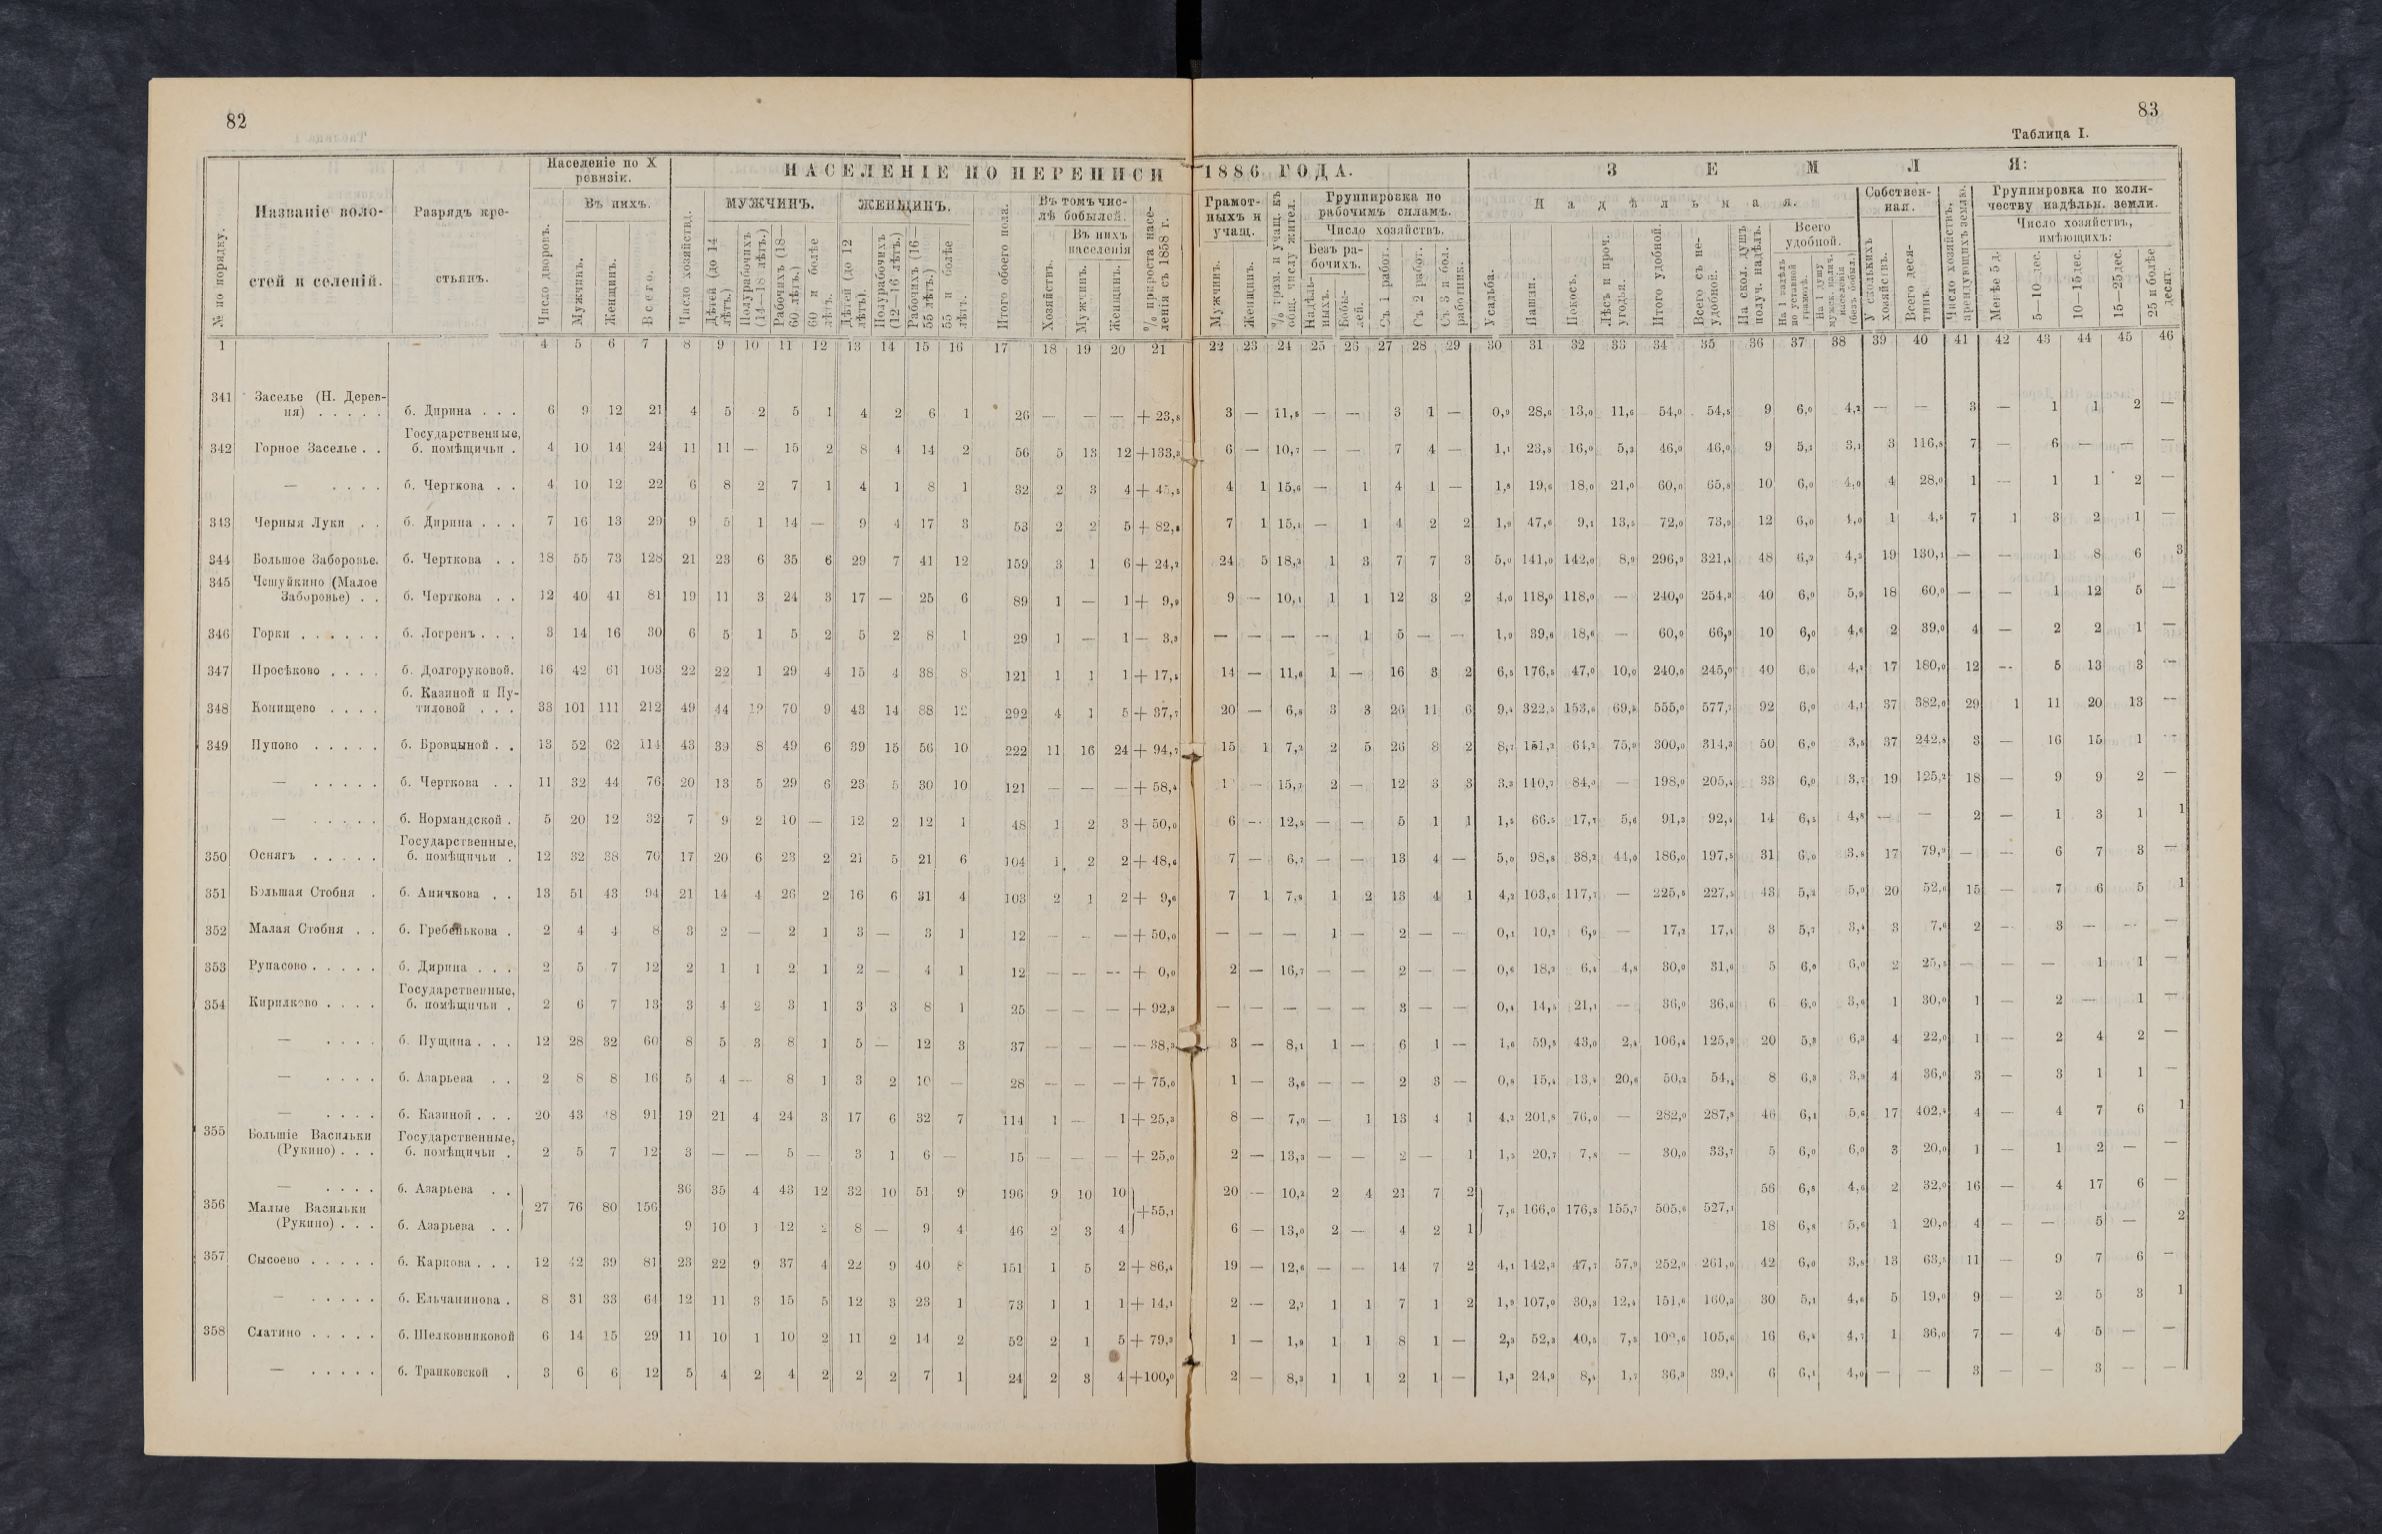 82
83
Таблица I.
№ по порядку.
Названіе воло-
стей и селеній.
Разрядъ кре-
стьянъ.
Населеніе по X
ревизіи.
Число дворовъ.
Въ нихъ.
Мужчинъ.
Женщинъ.
Всего.
НАСЕЛЕНІЕ ПО ПЕРЕПИСИ 1886 ГОДА.
Число хозяйствъ.
МУЖЧИНЪ.
Дѣтей (до 14 лѣтъ.)
Полурабочихъ (14—18 лѣтъ.)
Рабочихъ (18—60 лѣтъ.)
60 и болѣе лѣтъ.
ЖЕНЩИНЪ.
Дѣтей (до 12 лѣтъ).
Полурабочихъ (12—16 лѣтъ.)
Рабочихъ (16—55 лѣтъ.)
55 и болѣе лѣтъ.
Итого обоего пола.
Въ томъ чис-
лѣ бобылей.
Хозяйствъ.
Въ нихъ
населенія
Мужчинъ.
Женщинъ.
% прироста насе-
ленія съ 1858 г.
Грамот-
ныхъ и
учащ.
Мужчинъ.
Женщинъ.
% грам. и учащ. къ
общ. числу жител.
Группировка по
рабочимъ силамъ.
Число хозяйствъ.
Безъ ра-
бочихъ.
Надѣль-
ныхъ.
Бобы-
лей.
Съ 1 работ.
Съ 2 работ.
Съ 3 и бол.
работник.
ЗЕМЛЯ:
Надѣльная.
Усадьба.
Пашни.
Покосъ.
Лѣсъ и проч.
угодья.
Итого удобной.
Всего съ не-
удобной.
На скол. душъ
получ. надѣлъ.
Всего
удобной.
На 1 надѣлъ
по уставной
грамотѣ.
На 1 душу
мужск. налич.
населенія
(безъ бобыл.)
Собствен-
ная.
У сколькихъ
хозяйствъ.
Всего деся-
тинъ.
Число хозяйствъ,
арендующихъ землю.
Группировка по коли-
честву надѣльн. земли.
Число хозяйствъ,
имѣющихъ:
Менѣе 5 д.
5—10 дес.
10—15 дес.
15—25 дес.
25 и болѣе
десят.
1 4 5 6 7 8 9 10 11 12 13 14 15 16 17 18 19 20 21 22 23 24 25 26 27 28 29 30 31 32 33 34 35 36 37 38 39 40 41 42 43 44 45 46
341 Заселье (Н. Дерев-
ня) . . . . . б. Дирина . . . 6 9 12 21 4 5 2 5 1 4 2 6 1 26 — — — + 23,8 3 — 11,5 — — 3 1 — 0,9 28,6 13,0 11,6 54,0 54,5 9 6,0 4,2 — — 3 — 1 1 2 —
Государственные,
342 Горное Заселье . . б. помѣщичьи . 4 10 14 24 11 11 — 15 2 8 4 14 2 56 5 13 12 +133,3 6 — 10,7 — — 7 4 — 1,1 23,8 16,0 5,3 46,0 46,0 9 5,1 3,1 3 116,8 7 — 6 — — —
— . . . . б. Черткова . . 4 10 12 22 6 8 2 7 1 4 1 8 1 32 2 3 4 + 45,5 4 1 15,6 — 1 4 1 — 1,8 19,6 18,0 21,0 60,0 65,8 10 6,0 4,0 4 28,0 1 — 1 1 2 —
343 Черныя Луки . . б. Дирина . . . 7 16 13 29 9 5 1 14 — 9 4 17 3 53 2 2 5 + 82,8 7 1 15,1 — 1 4 2 2 1,9 47,6 9,1 13,5 72,0 73,9 12 6,0 4,0 1 4,5 7 1 3 2 1 —
344 Большое Заборовье. б. Черткова . . 18 55 73 128 21 23 6 35 6 29 7 41 12 159 3 1 6 + 24,2 24 5 18,2 1 3 7 7 3 5,0 141,0 142,0 8,9 296,9 321,4 48 6,2 4,3 19 130,1 — — 1 8 6 3
345 Чешуйкино (Малое
Заборовье) . . б. Черткова . . 12 40 41 81 19 11 3 24 3 17 — 25 6 89 1 — 1 + 9,9 9 — 10,1 1 1 12 3 2 4,0 118,0 118,0 — 240,0 254,3 40 6,0 5,9 18 60,0 — — 1 12 5 —
346 Горки . . . . . . б. Логренъ . . . 3 14 16 30 6 5 1 5 2 5 2 8 1 29 1 — 1 — 3,3 — — — — 1 5 — — 1,9 39,6 18,6 — 60,0 66,9 10 6,0 4,6 2 39,0 4 — 2 2 1 —
347 Просѣково . . . . б. Долгоруковой. 16 42 61 103 22 22 1 29 4 15 4 38 8 121 1 1 1 + 17,5 14 — 11,6 1 — 16 3 2 6,5 176,5 47,0 10,0 240,0 245,0 40 6,0 4,3 17 180,0 12 — 5 13 3 —
б. Казиной и Пу-
348 Конищево . . . . тиловой . . . 33 101 111 212 49 44 12 70 9 43 14 88 12 292 4 1 5 + 37,7 20 — 6,8 3 3 26 11 6 9,4 322,5 153,6 69,5 555,0 577,7 92 6,0 4,1 37 382,0 29 1 11 20 13 —
349 Пупово . . . . . б. Бровцыной . . 13 52 62 114 43 39 8 49 6 39 15 56 10 222 11 16 24 + 94,7 15 1 7,2 2 5 26 8 2 8,7 151,2 64,2 75,9 300,0 314,3 50 6,0 3,5 37 242,8 3 — 16 15 1 —
— . . . . . б. Черткова . . 11 32 44 76 20 13 5 29 6 23 5 30 10 121 — — — + 58,4 1 — 15,7 2 — 12 3 3 3,3 110,7 84,0 — 198,0 205,4 33 6,0 3,7 19 125,2 18 — 9 9 2 —
— . . . . . б. Нормандской . 5 20 12 32 7 9 2 10 — 12 2 12 1 48 1 2 3 + 50,0 6 — 12,5 — — 5 1 1 1,5 66,5 17,7 5,6 91,3 92,4 14 6,5 4,8 — — 2 — 1 3 1 1
Государственные,
350 Оснягъ . . . . . б. помѣщичьи . 12 32 38 70 17 20 6 23 2 21 5 21 6 104 1 2 2 + 48,6 7 — 6,7 — — 13 4 — 5,0 98,8 38,2 44,0 186,0 197,5 31 6,0 3,8 17 79,9 — — 6 7 3 —
351 Большая Стобня . б. Аничкова . . 13 51 43 94 21 14 4 26 2 16 6 31 4 103 2 1 2 + 9,6 7 1 7,8 1 2 13 4 1 4,2 103,6 117,7 — 225,5 227,5 43 5,2 5,0 20 52,6 15 — 7 6 5 1
352 Малая Стобня . . б. Гребенькова . 2 4 4 8 3 2 — 2 1 3 — 3 1 12 — — — + 50,0 — — — 1 — 2 — — 0,1 10,2 6,9 — 17,2 17,4 3 5,7 3,4 3 7,6 2 — 3 — — —
353 Рупасово . . . . . б. Дирина . . . 2 5 7 12 2 1 1 2 1 2 — 4 1 12 — — — + 0,0 2 — 16,7 — — 2 — — 0,6 18,2 6,4 4,8 30,0 31,0 5 6,0 6,0 2 25,5 — — — 1 1 —
Государственные,
354 Кирилково . . . . б. помѣщичьи . 2 6 7 13 3 4 2 3 1 3 3 8 1 25 — — — + 92,3 — — — — — 3 — — 0,4 14,5 21,1 — 36,0 36,6 6 6,0 3,6 1 30,0 1 — 2 — 1 —
— . . . . б. Пущина . . . 12 28 32 60 8 5 3 8 1 5 — 12 3 37 — — — — 38,3 3 — 8,1 1 — 6 1 — 1,6 59,8 43,0 2,4 106,4 125,9 20 5,3 6,3 4 22,0 1 — 2 4 2 —
— . . . . б. Азарьева . . 2 8 8 16 5 4 — 8 1 3 2 10 — 28 — — — + 75,0 1 — 3,6 — — 2 3 — 0,8 15,4 13,4 20,6 50,2 54,4 8 6,3 3,9 4 36,0 3 — 3 1 1 —
— . . . . б. Казиной . . . 20 43 48 91 19 21 4 24 3 17 6 32 7 114 1 — 1 + 25,3 8 — 7,0 — 1 13 4 1 4,2 201,8 76,0 — 282,0 287,8 46 6,1 5,6 17 402,4 4 — 4 7 6 1
355 Большіе Васильки Государственные,
(Рукино) . . . б. помѣщичьи . 2 5 7 12 3 — — 5 — 3 1 6 — 15 — — — + 25,0 2 — 13,3 — — 2 — 1 1,5 20,7 7,8 — 30,0 33,7 5 6,0 6,0 3 20,0 1 — 1 2 — —
— . . . . б. Азарьева . . 36 35 4 43 12 32 10 51 9 196 9 10 10 20 — 10,2 2 4 21 7 2 56 6,8 4,6 2 32,0 16 — 4 17 6 —
356 Малые Васильки 27 76 80 156 +55,1 7,6 166,0 176,3 155,7 505,6 527,1
(Рукино) . . . б. Азарьева . . 9 10 1 12 2 8 — 9 4 46 2 3 4 6 — 13,0 2 — 4 2 1 18 6,8 5,6 1 20,0 4 — — 5 — 2
357 Сысоево . . . . . б. Карпова . . . 12 42 39 81 23 22 9 37 4 22 9 40 8 151 1 5 2 + 86,4 19 — 12,6 — — 14 7 2 4,1 142,3 47,7 57,9 252,0 261,0 42 6,0 3,8 13 63,5 11 — 9 7 6 —
— . . . . . б. Ельчанинова . 8 31 33 64 12 11 3 15 5 12 3 23 1 73 1 1 1 + 14,1 2 — 2,7 1 1 7 1 2 1,9 107,0 30,3 12,4 151,6 160,3 30 5,1 4,6 5 19,0 9 — 2 5 3 1
358 Слатино . . . . . б. Шелковниковой 6 14 15 29 11 10 1 10 2 11 2 14 2 52 2 1 5 + 79,3 1 — 1,9 1 1 8 1 — 2,3 52,3 40,5 7,5 102,6 105,6 16 6,4 4,7 1 36,0 7 — 4 5 — —
— . . . . . б. Транковской . 3 6 6 12 5 4 2 4 2 2 2 7 1 24 2 3 4 +100,0 2 — 8,3 1 1 2 1 — 1,3 24,9 8,4 1,7 36,3 39,4 6 6,1 4,0 — — 3 — — 3 — —